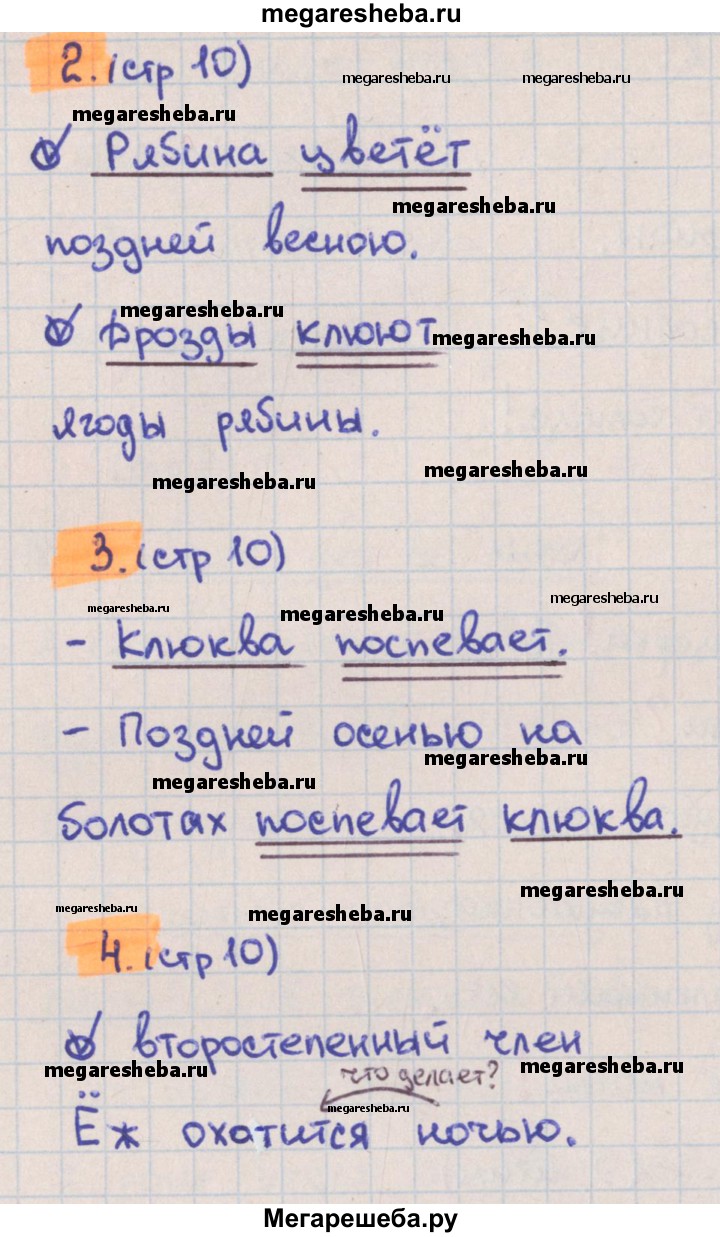 megaresheba.ru
2. (стр 10)
megaresheba.ru megaresheba.ru
megaresheba.ru
Рябина цветёт
megaresheba.ru
поздней весною.
megaresheba.ru
Дрозды клюют
megaresheba.ru
ягоды рябины.
megaresheba.ru
megaresheba.ru
3. (стр 10)
megaresheba.ru megaresheba.ru megaresheba.ru
- Клюква поспевает.
- Поздней осенью на
megaresheba.ru
megaresheba.ru
болотах поспевает клюква.
megaresheba.ru
megaresheba.ru megaresheba.ru
4. (стр 10)
второстепенный член
megaresheba.ru megaresheba.ru
что делает?
megaresheba.ru
Ёж охатится ночью.
Мегарешеба.ру